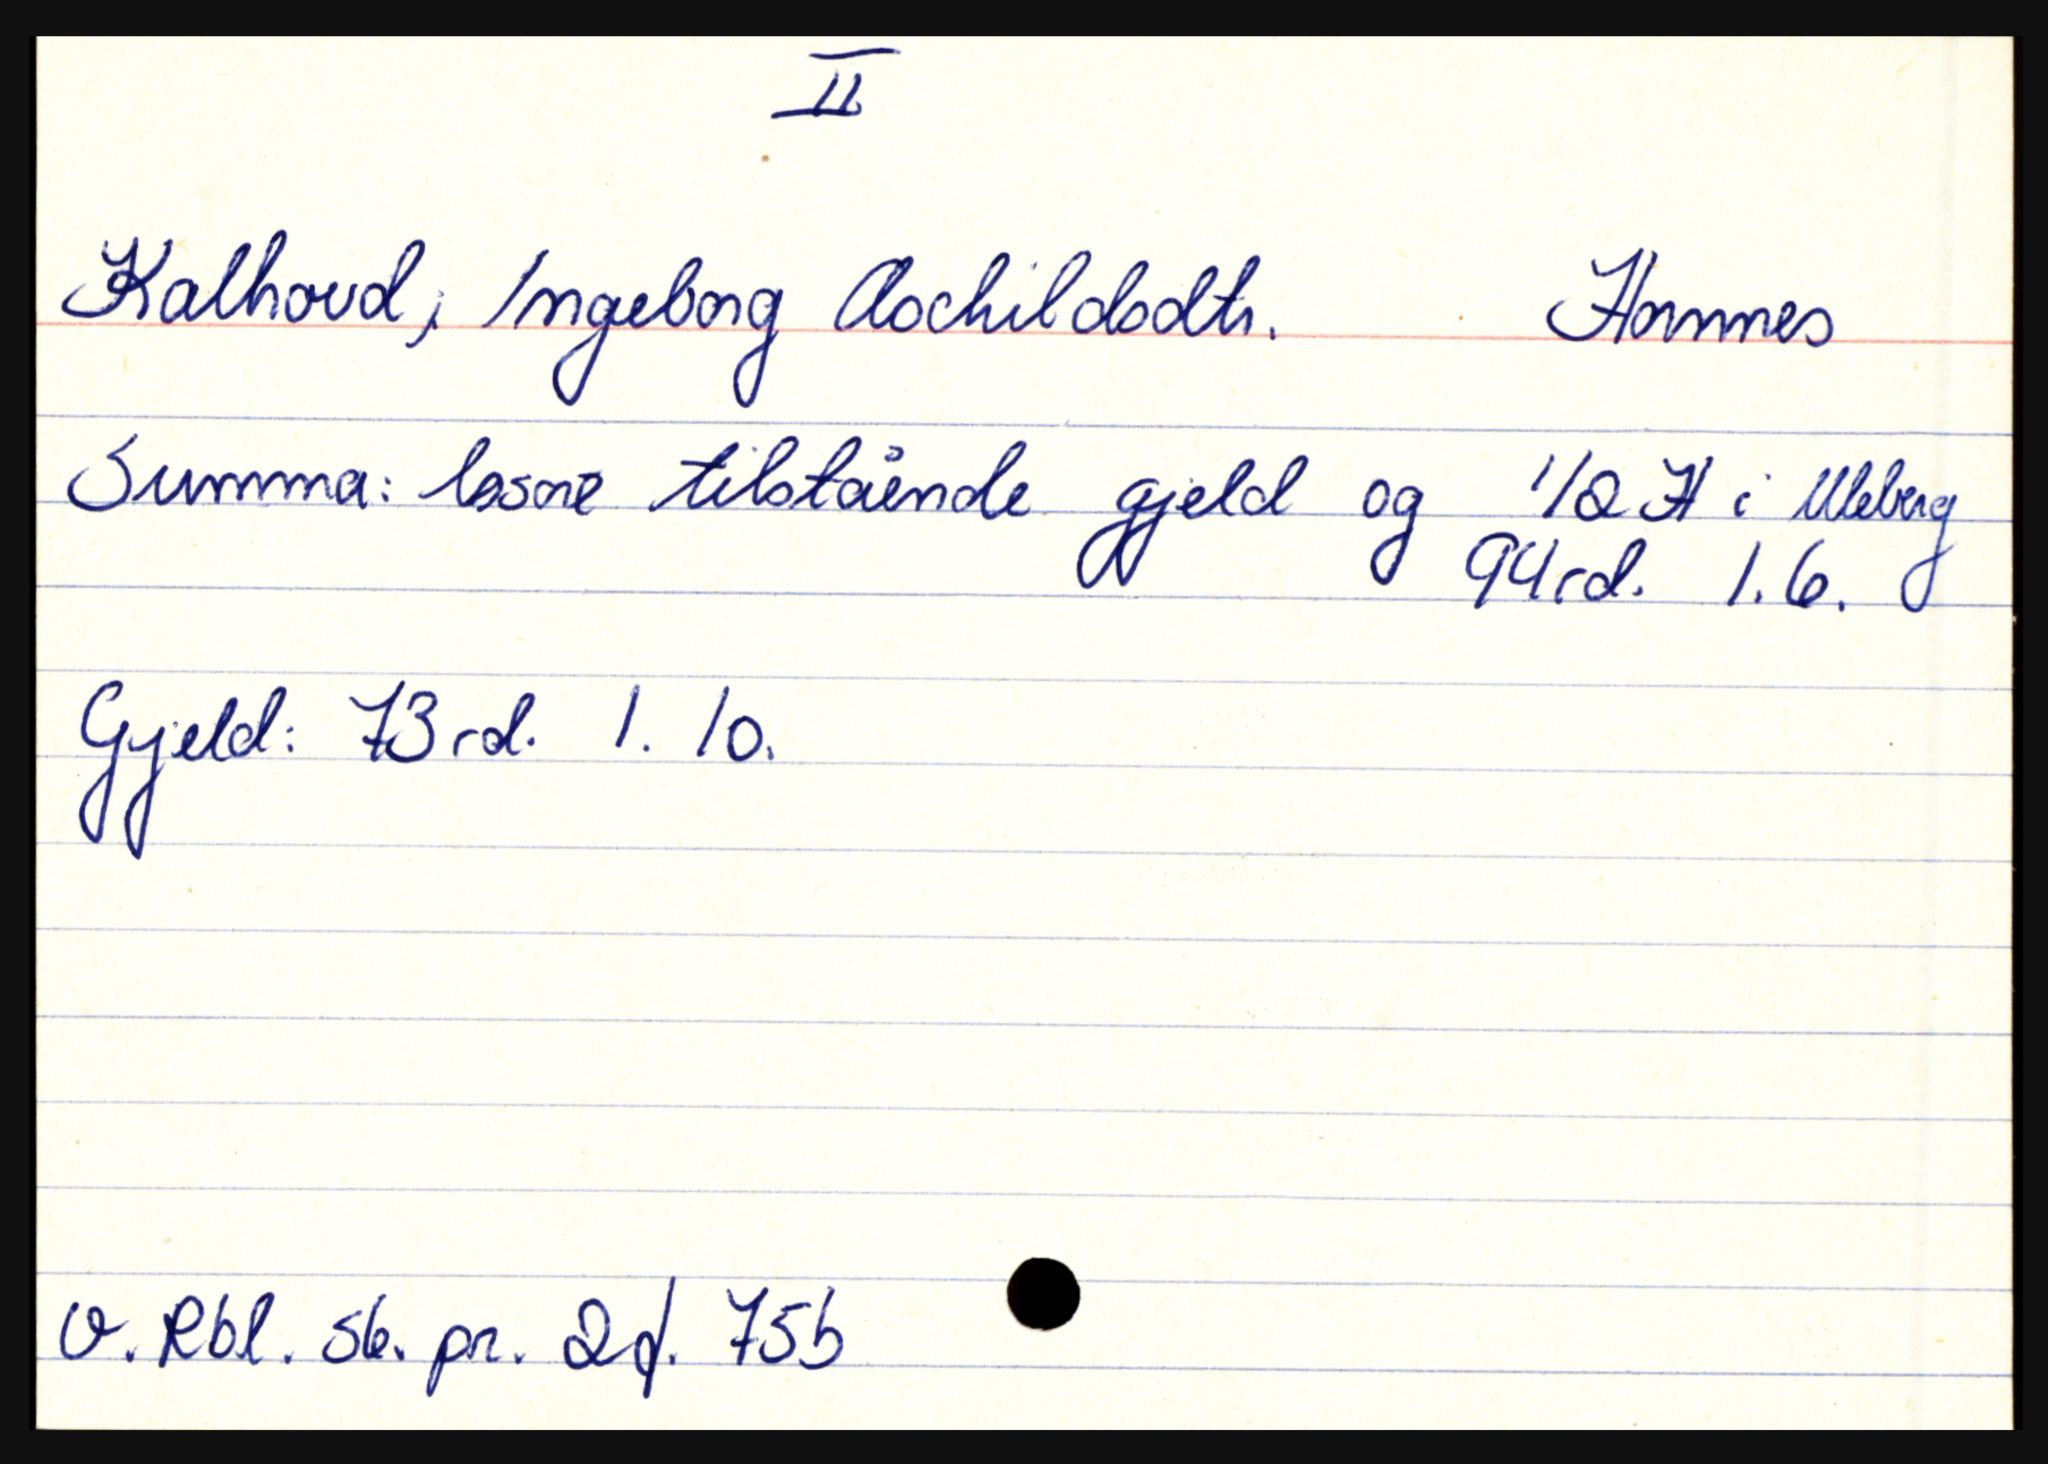 II
Kalhovd, Ingeborg Aschildsdtr. Hornnes
Summa: løsøre tilstående gjeld og 1/2 H i Uleberg
94rd. 1.6.
Gjeld: 73rd. 1. 10.
V. Rbl. sk. pr. 2 f. 75b